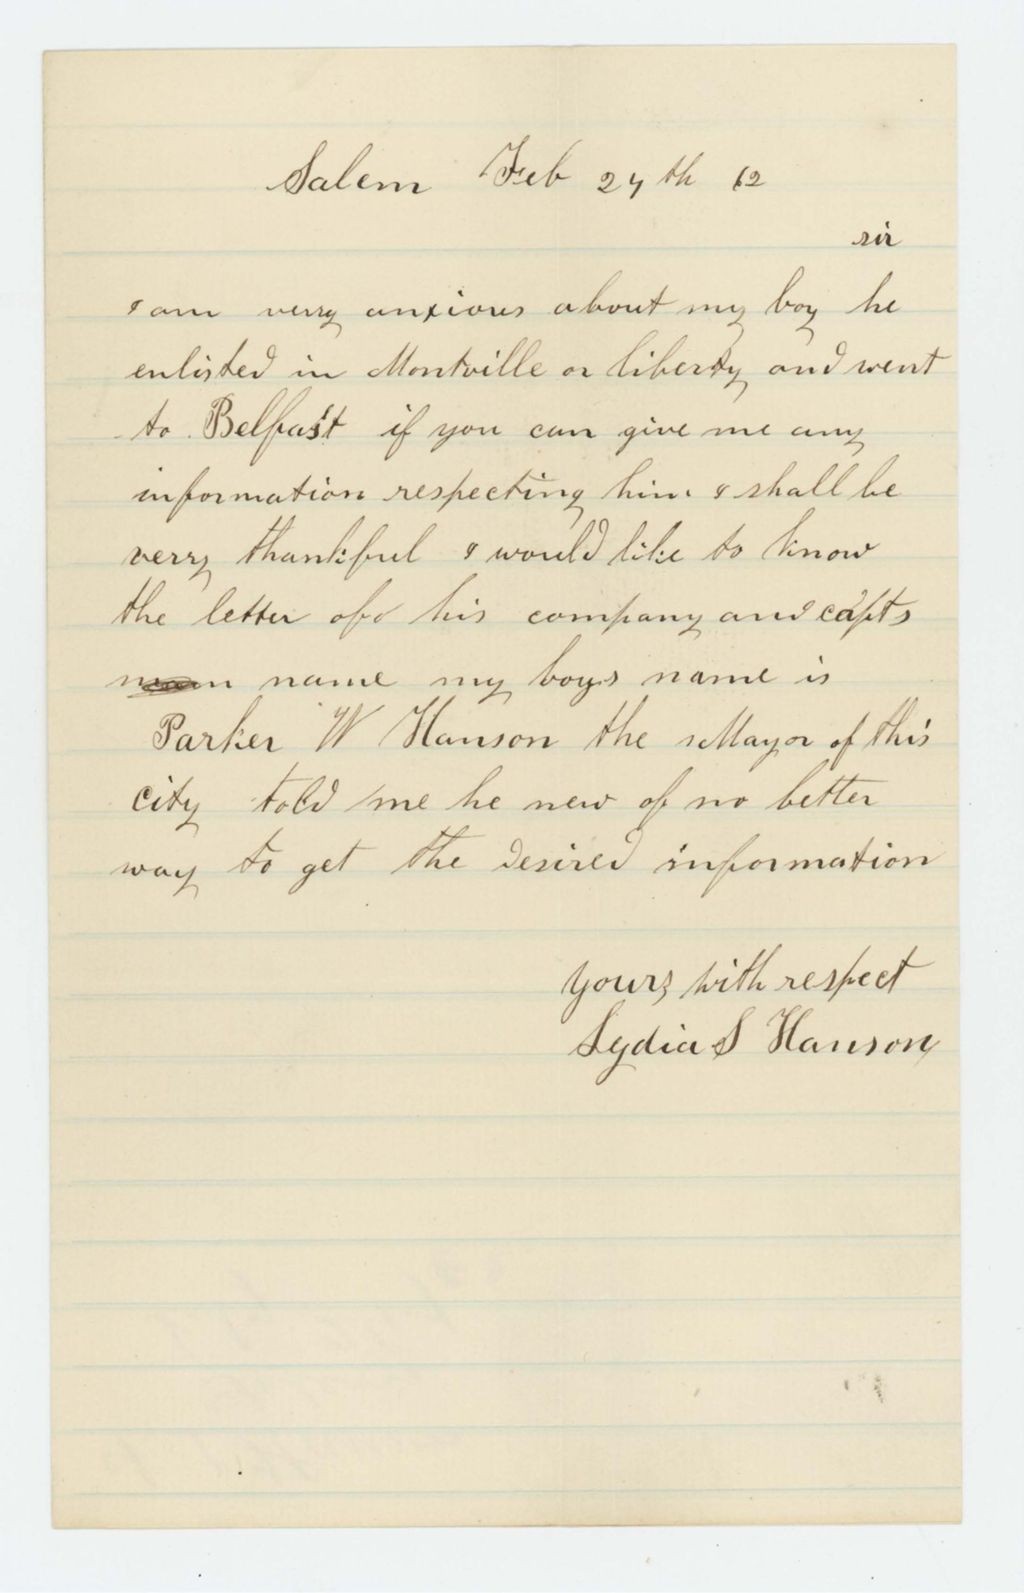 Salem Feb 24th 62
sir
I am verry anxious about my boy he
enlisted in Montville or liberty and went
to Belfast if you can give me any
information respecting him I shall be
verry thankful I would like to know
the letter of his company and capts
name my boys name is
Parker W Hanson the Mayor of this
city told me he new of no better
way to get the desired information
yours with respect
Lydia S Hanson